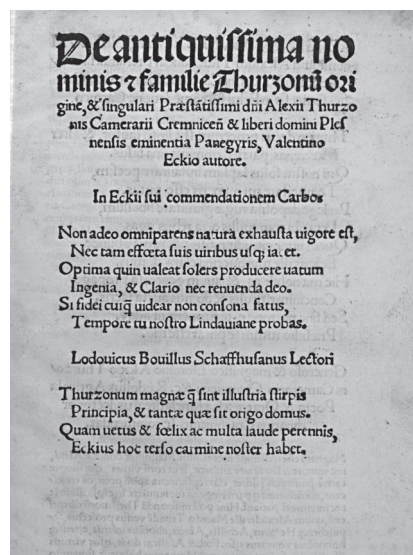 De antiquissima no
minis ⁊ familie Thurzonũ ori
gine, & singulari Præstãtissimi dñi Alexii Thurzo
nis Camerarii Cremniceñ & liberi domini Ples
nensis eminentia Panegyris, Valentino
Eckio autore.
In Eckii sui commendationem Carbo
Non adeo omniparens natura exhausta uigore est,
Nec tam effœta suis uiribus usq; iacet.
Optima quin ualeat solers producere uatum
Ingenia, & Clario nec renuenda deo.
Si fidei cuiq̃ uidear non consona fatus,
Tempore tu nostro Lindauiane probas.
Lodouicus Bouillus Schaffhusanus Lectori
Thurzonum magnæ q̃ sint illustria stirpis
Principia, & tantæ quæ sit origo domus.
Quam uetus & fœlix ac multa laude perennis,
Eckius hoc terso carmine noster habet.